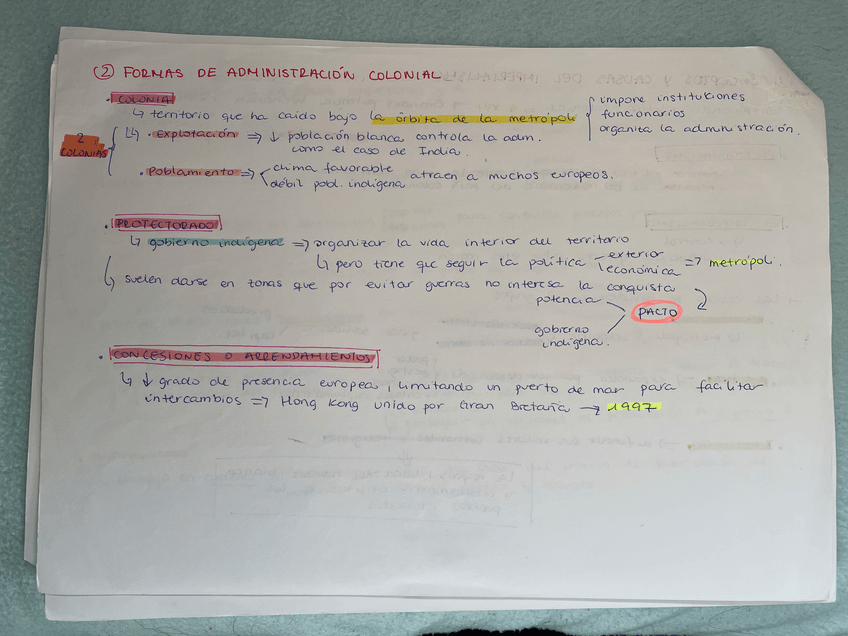 ② FORMAS DE ADMINISTRACIÓN COLONIAL
· COLONIA
↳ territorio que ha caído bajo la órbita de la metrópoli
impone instituciones
funcionarios
organiza la administración.
2 COLONIAS
↳ · Explotación ⇒ ↓ población blanca controla la adm.
como el caso de India.
· Poblamiento ⇒ clima favorable
débil pobl. indígena
atraen a muchos europeos.
· PROTECTORADO
↳ gobierno indígena ⇒ organizar la vida interior del territorio
↳ pero tiene que seguir la política exterior
económica
⇒ metrópoli.
↳ suelen darse en zonas que por evitar guerras no interesa la conquista
potencia
gobierno
indígena.
PACTO
· CONCESIONES O ARRENDAMIENTOS
↳ ↓ grado de presencia europea, limitando un puerto de mar para facilitar
intercambios ⇒ Hong Kong unido por Gran Bretaña → 1997